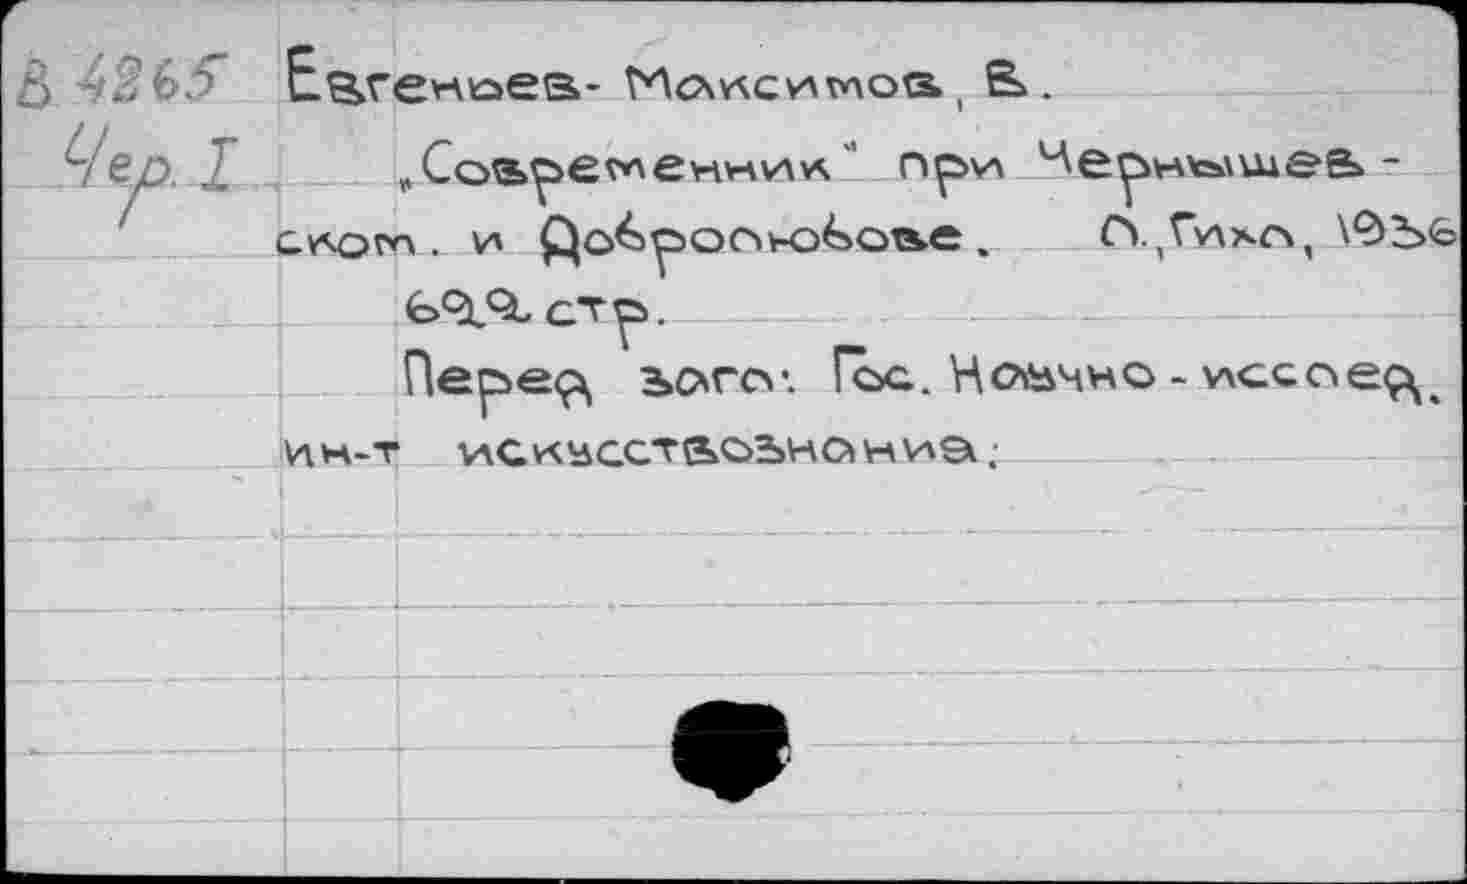 В 4265 Евгеньев- Максимов, В.
Чер. I „Современник" при Чернышев-
ском. и Добролюбове. Л., Гихл, 1936
699 стр.
Перед загл: Гос. Научно-исслед.
ин-т искусствознания.